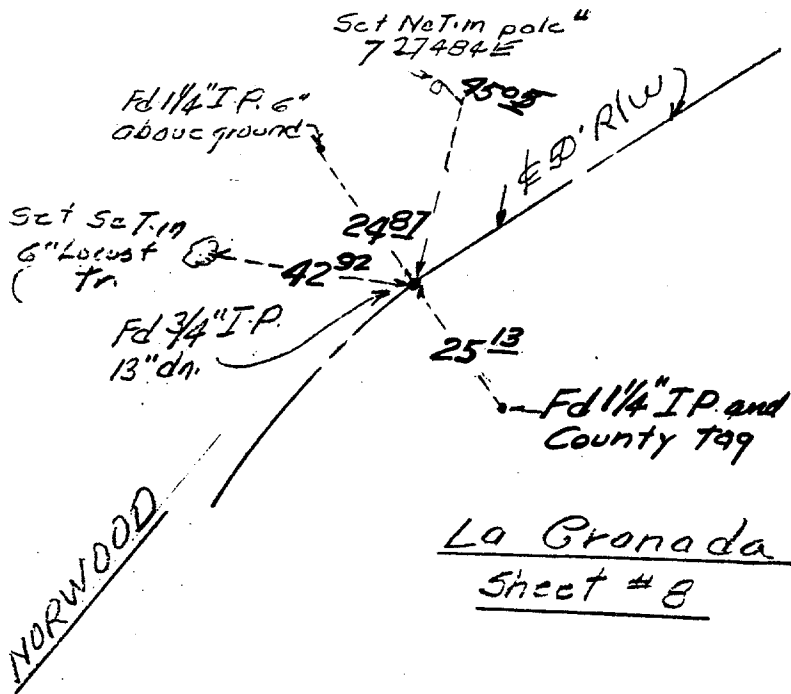 Set N&T. in pole "
7 27484E
45 05
Fd 1 1/4" I.P. 6"
above ground
℄ 50' R/W
24 87
Set S&T. in
6" Locust
Tr.
42 92
Fd 3/4" I.P.
13" dn.
25 13
Fd 1 1/4" I.P. and
County Tag
NORWOOD
La Granada
Sheet # 8